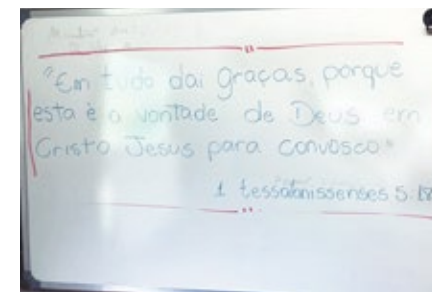 "Em tudo dai graças, porque
esta é a vontade de Deus em
Cristo Jesus para convosco"
1 tessalonissenses 5:18